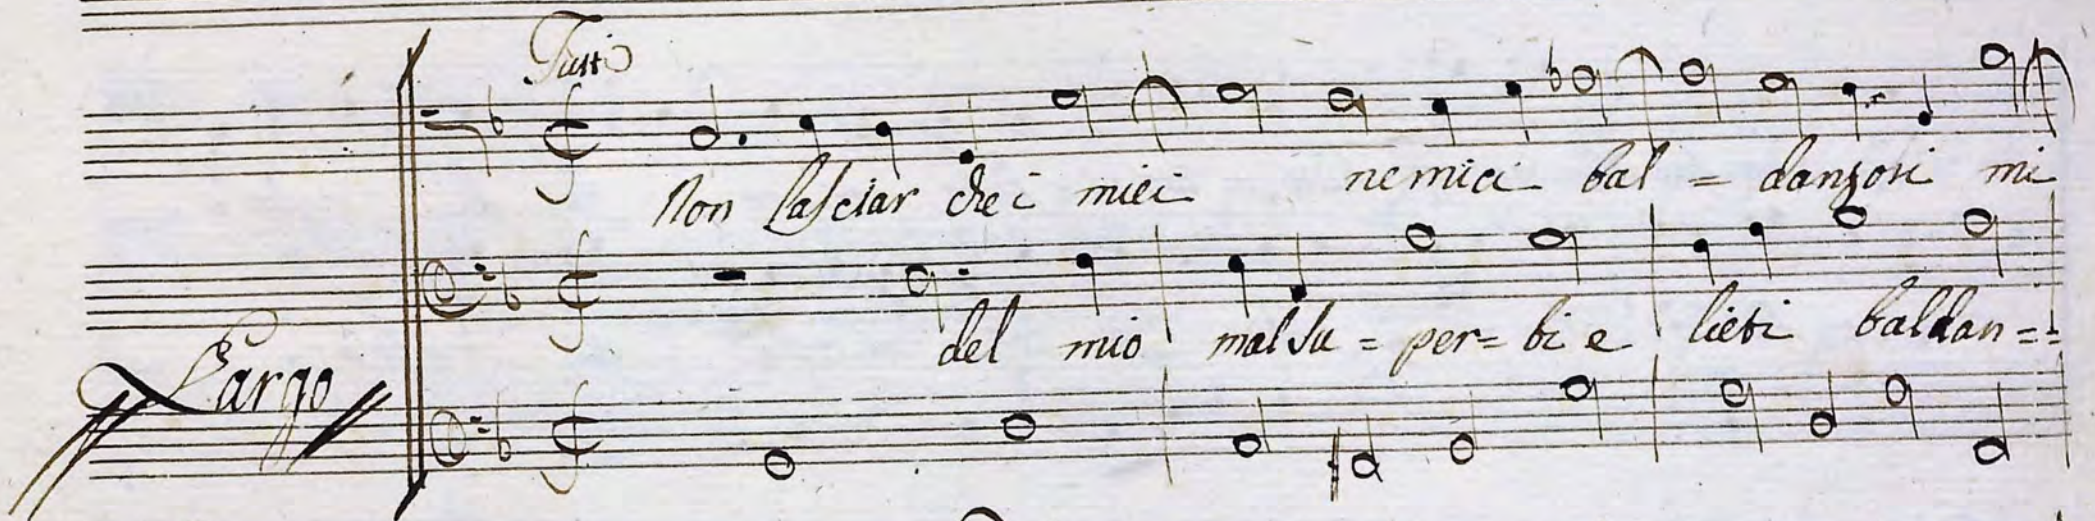 Tutti
Non lasciar che i miei nemici bal = danzosi mi
del mio mal su = per = bi e lieti baldan =
Largo